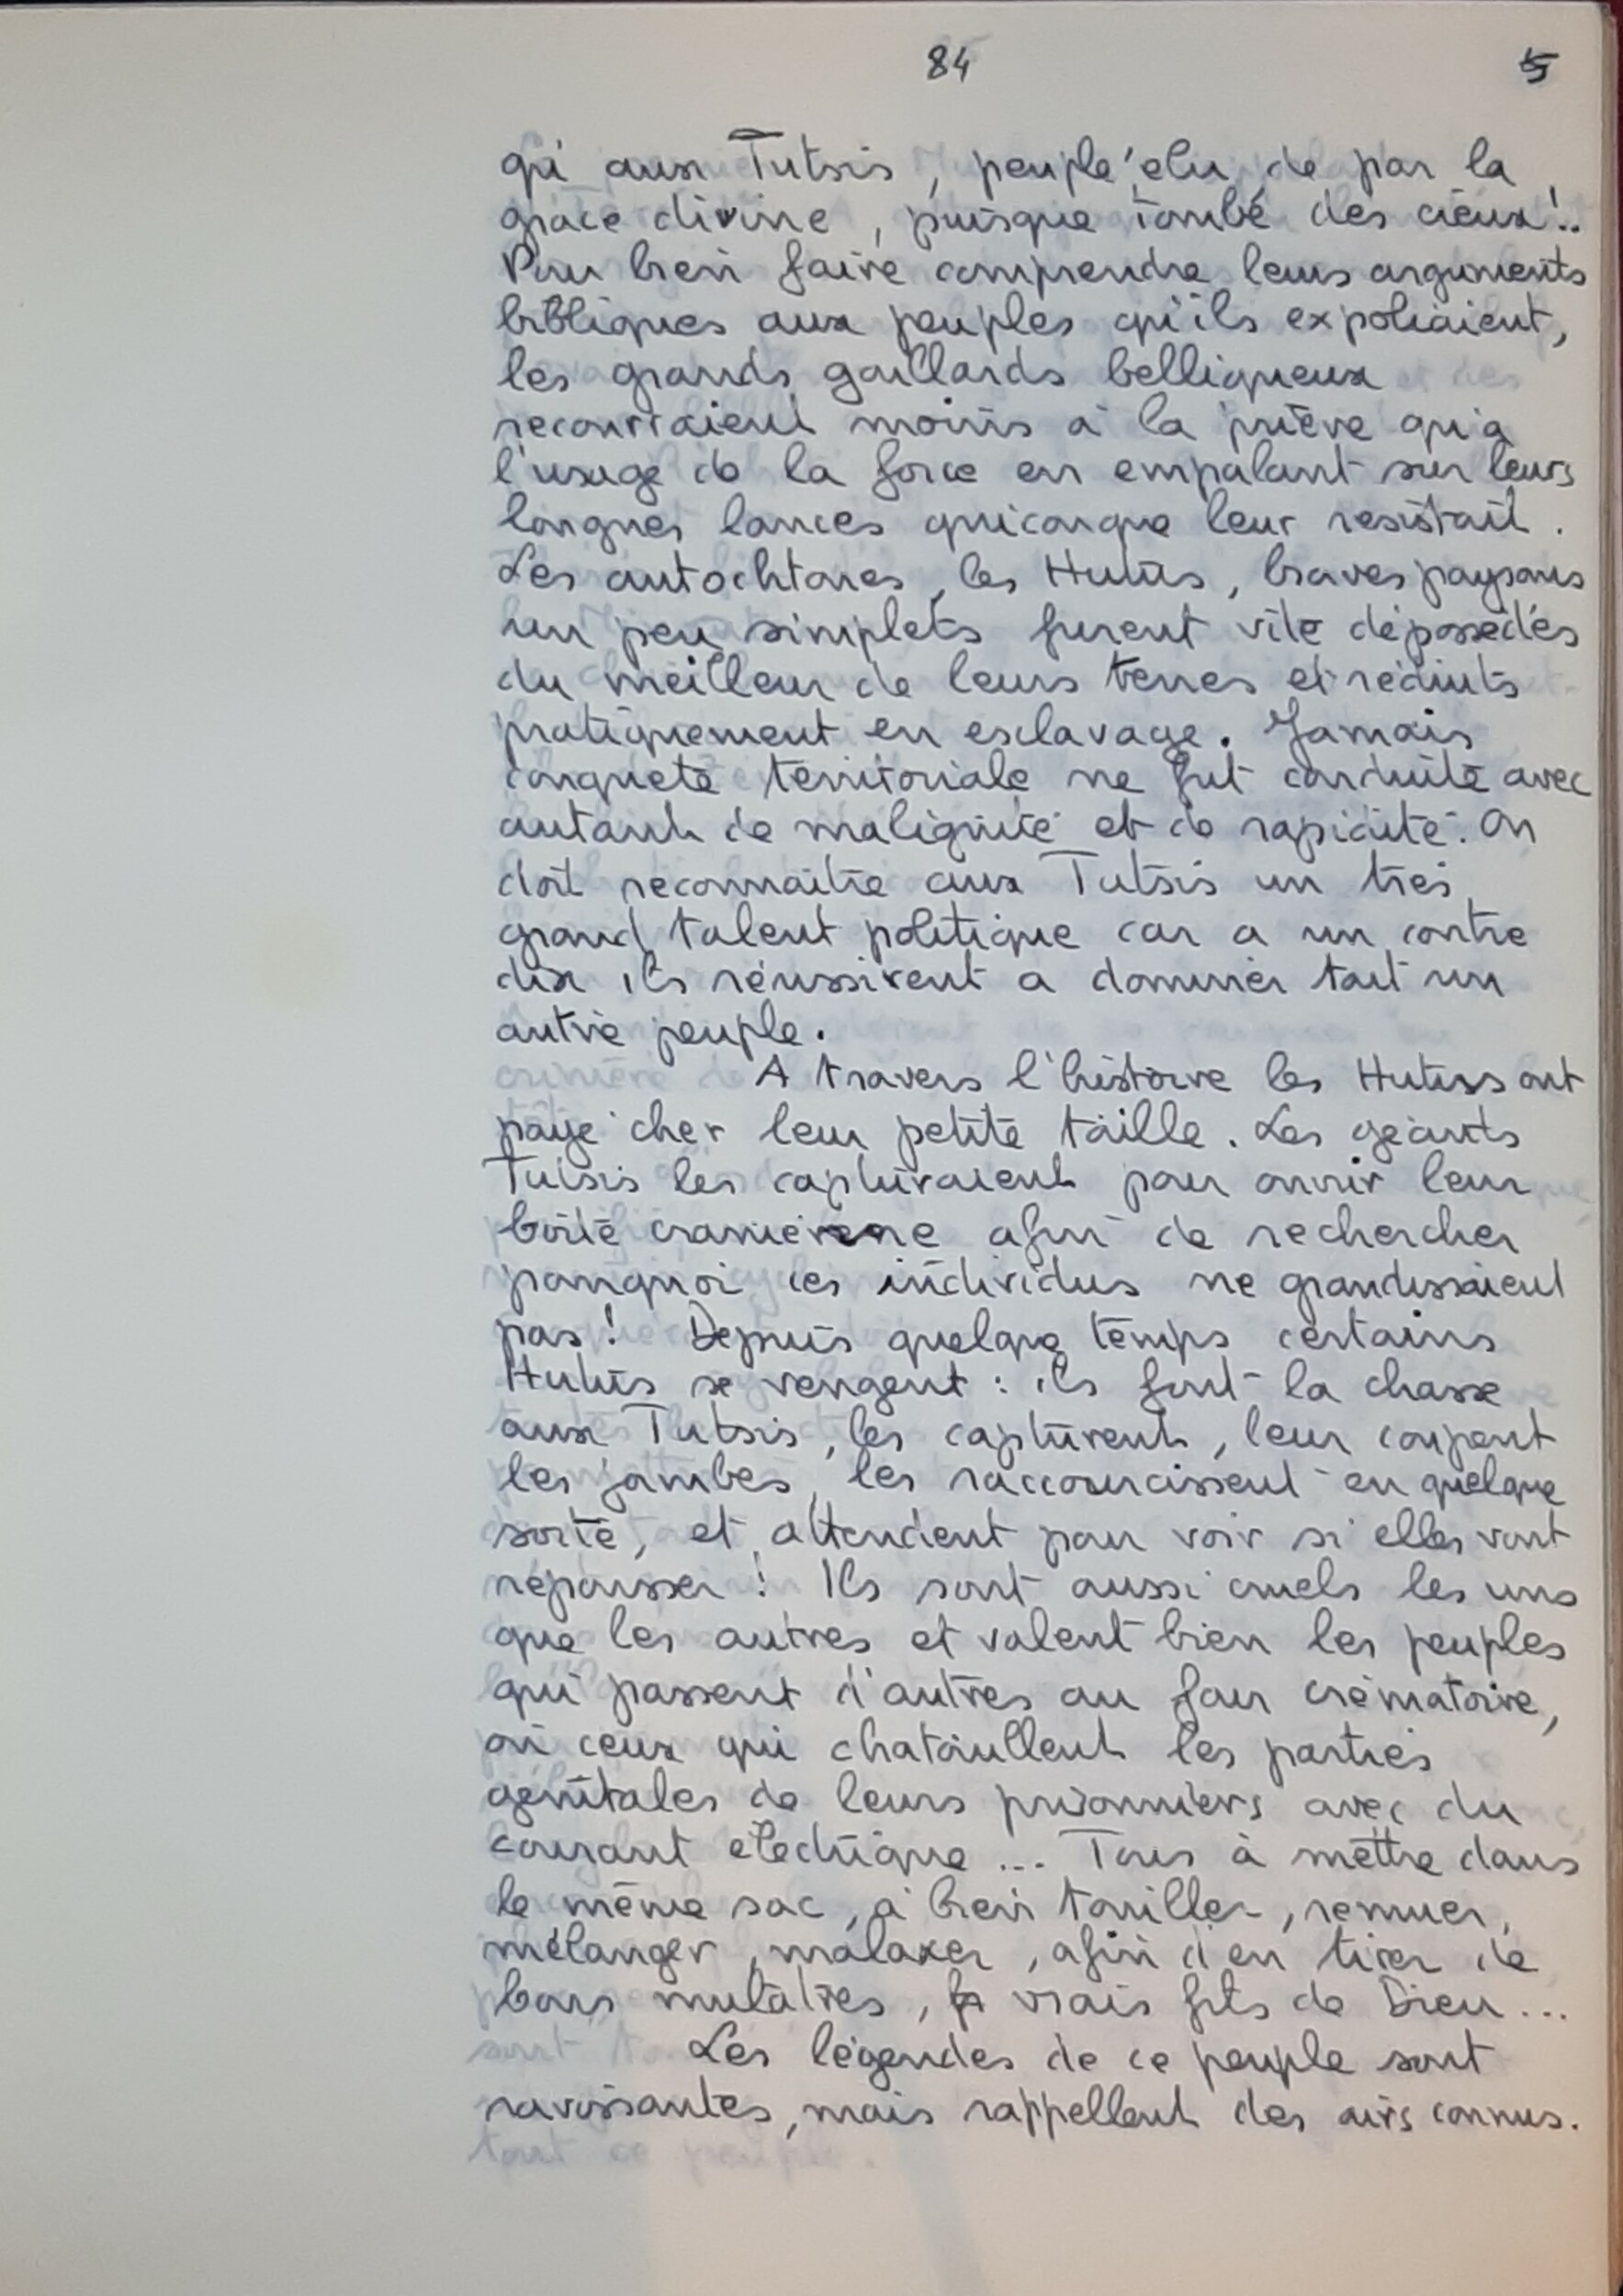 84
5
qu'aux Tutsis, peuple élu de par la
grace divine, puisque tombé des cieux!..
Pour bien faire comprendre leurs arguments
bibliques aux peuples qu'ils expoliaient,
les grands gaillards belliqueux
recourraient moins à la prière qu'à
l'usage de la force en empalant sur leurs
longues lances quiconque leur resistait.
Les autochtones, les Hutus, braves paysans
un peu simplets furent vite dépossédés
du meilleur de leurs terres et réduits
pratiquement en esclavage. Jamais
conquete territoriale ne fut conduite avec
autant de malignité et de rapidité. On
doit reconnaitre aux Tutsis un tres
grand talent politique car a un contre
dix ils réussirent a dominer tout un
autre peuple.
A travers l'histoire les Hutus ont
payé cher leur petite taille. Les géants
Tutsis les capturaient pour ouvrir leur
boite cranienne afin de rechercher
pourquoi ces individus ne grandissaient
pas! Depuis quelque temps certains
Hutus se vengent : ils font la chasse
aux Tutsis, les capturent, leur coupent
les jambes, les raccourcissent en quelque
sorte, et attendent pour voir si elles vont
repousser! Ils sont aussi cruels les uns
que les autres et valent bien les peuples
qui passent d'autres au four crématoire,
ou ceux qui chatouillent les parties
génitales de leurs prisonniers avec du
courant electrique... Tous à mettre dans
le même sac, à bien touiller, remuer,
mélanger, malaxer, afin d'en tirer de
bons mulâtres, vrais fils de Dieu...
Les légendes de ce peuple sont
ravissantes, mais rappellent des airs connus.